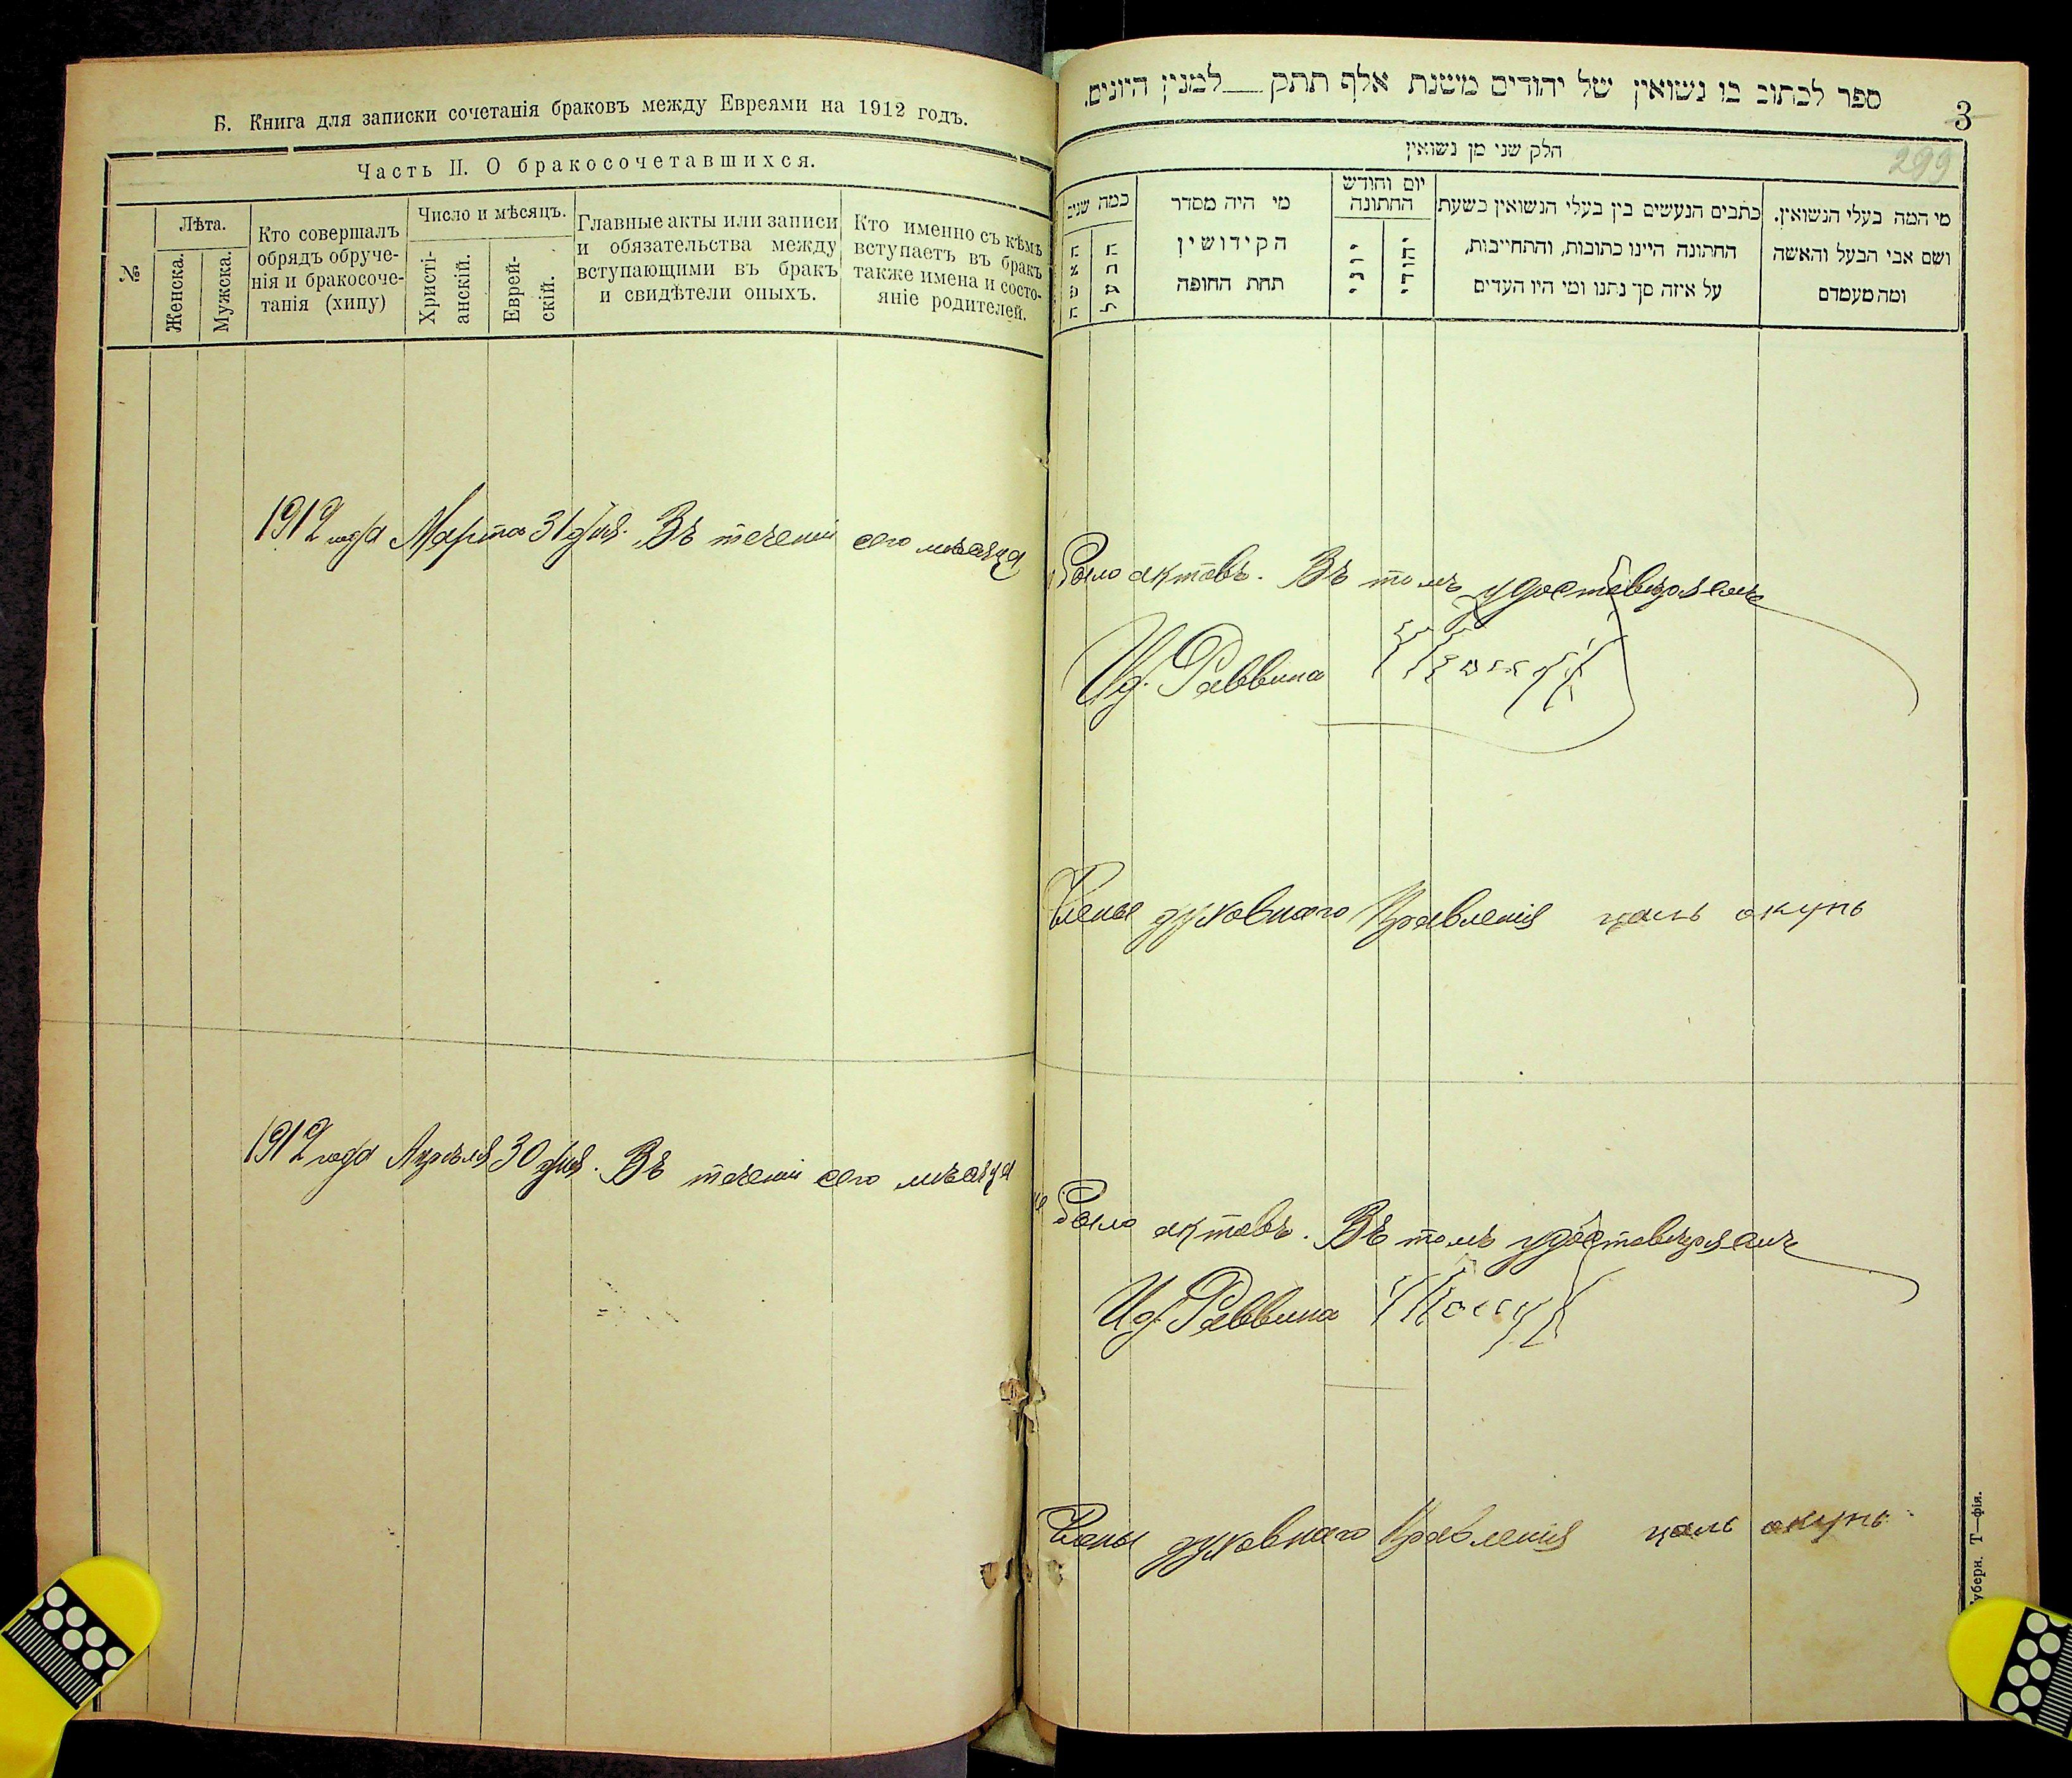 Б. Книга для записки сочетанія браковъ между Евреями на 1912 годъ.
Часть II. О бракосочетавшихся.
№
Лѣта.
Женска.
Мужска.
Кто совершалъ
обрядъ обруче-
нія и бракосоче-
танія (хипу)
Число и мѣсяцъ.
Христі-
анскій.
Еврей-
скій.
Главные акты или записи
и обязательства между
вступающими въ бракъ
и свидѣтели оныхъ.
Кто именно съ кѣмъ
вступаетъ въ бракъ
также имена и состо-
яніе родителей.
1912 года Марта 31 дня. Въ теченіи сего мѣсяца
1912 года Апрѣля 30 дня. Въ теченіи сего мѣсяца
ספר לכתוב בו נשואין של יהודים משנת אלף תתק ___ למנין היונים.
3
299
חלק שני מן נשואין
מי המה בעלי הנשואין.
ושם אבי הבעל והאשה
ומה מעמדם
כתבים הנעשים בין בעלי הנשואין בשעת
החתונה היינו כתובות, והתחייבות,
על איזה סך נתנו ומי היו העדים
יום וחודש
החתונה
יהודי
יוני
מי היה מסדר
הקידושין
תחת החופה
כמה שנים
הבעל
האשה
было актовъ. Въ томъ удостовѣряемъ
И. д. Раввина
Члены духовнаго Правленія цаль окунь
не было актовъ. Въ томъ удостовѣряемъ
И. д. Раввина
Члены духовнаго Правленія цаль окунь
Губерн. Т—фія.